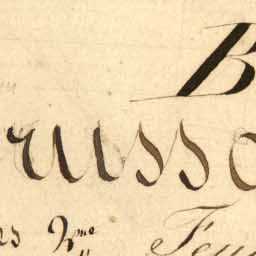 B
russo
rs 2.me Feu